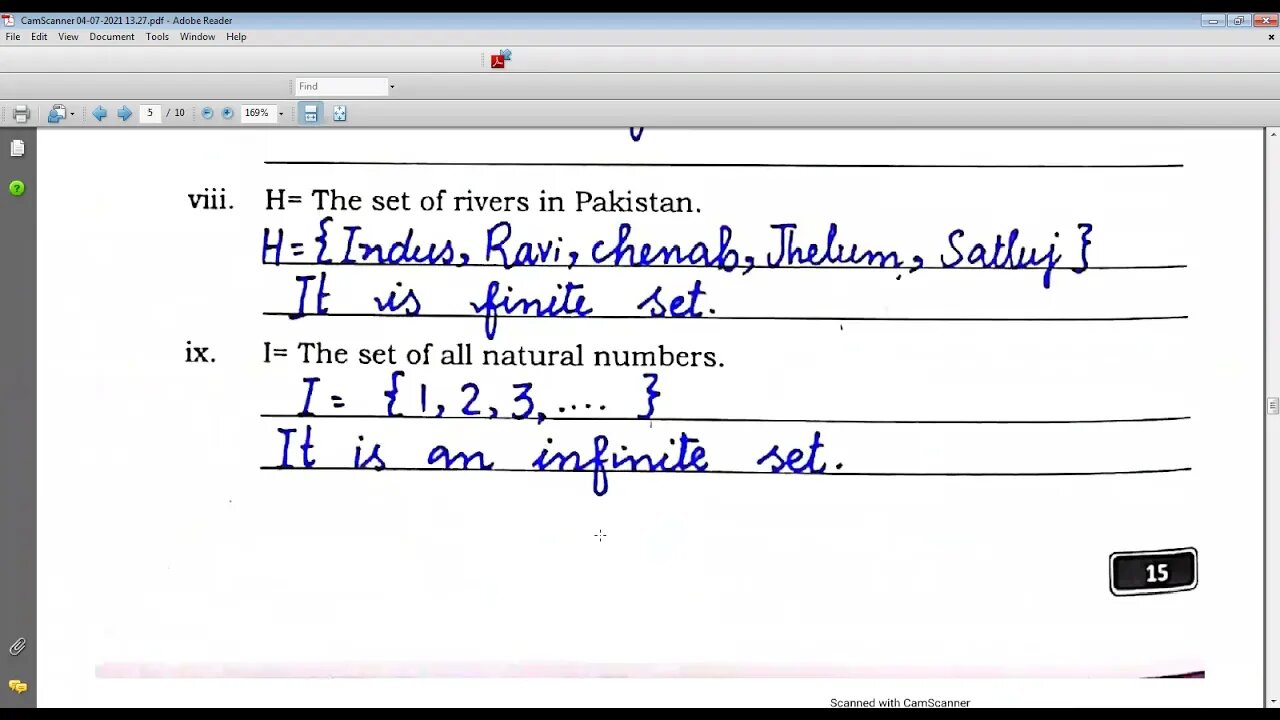 CamScanner 04-07-2021 13.27.pdf - Adobe Reader
File Edit View Document Tools Window Help
Find
5 / 10 169%
viii. H= The set of rivers in Pakistan.
H={Indus, Ravi, chenab, Jhelum, Satluj}
It is finite set.
ix. I= The set of all natural numbers.
I= {1, 2, 3, .... }
It is an infinite set.
15
Scanned with CamScanner